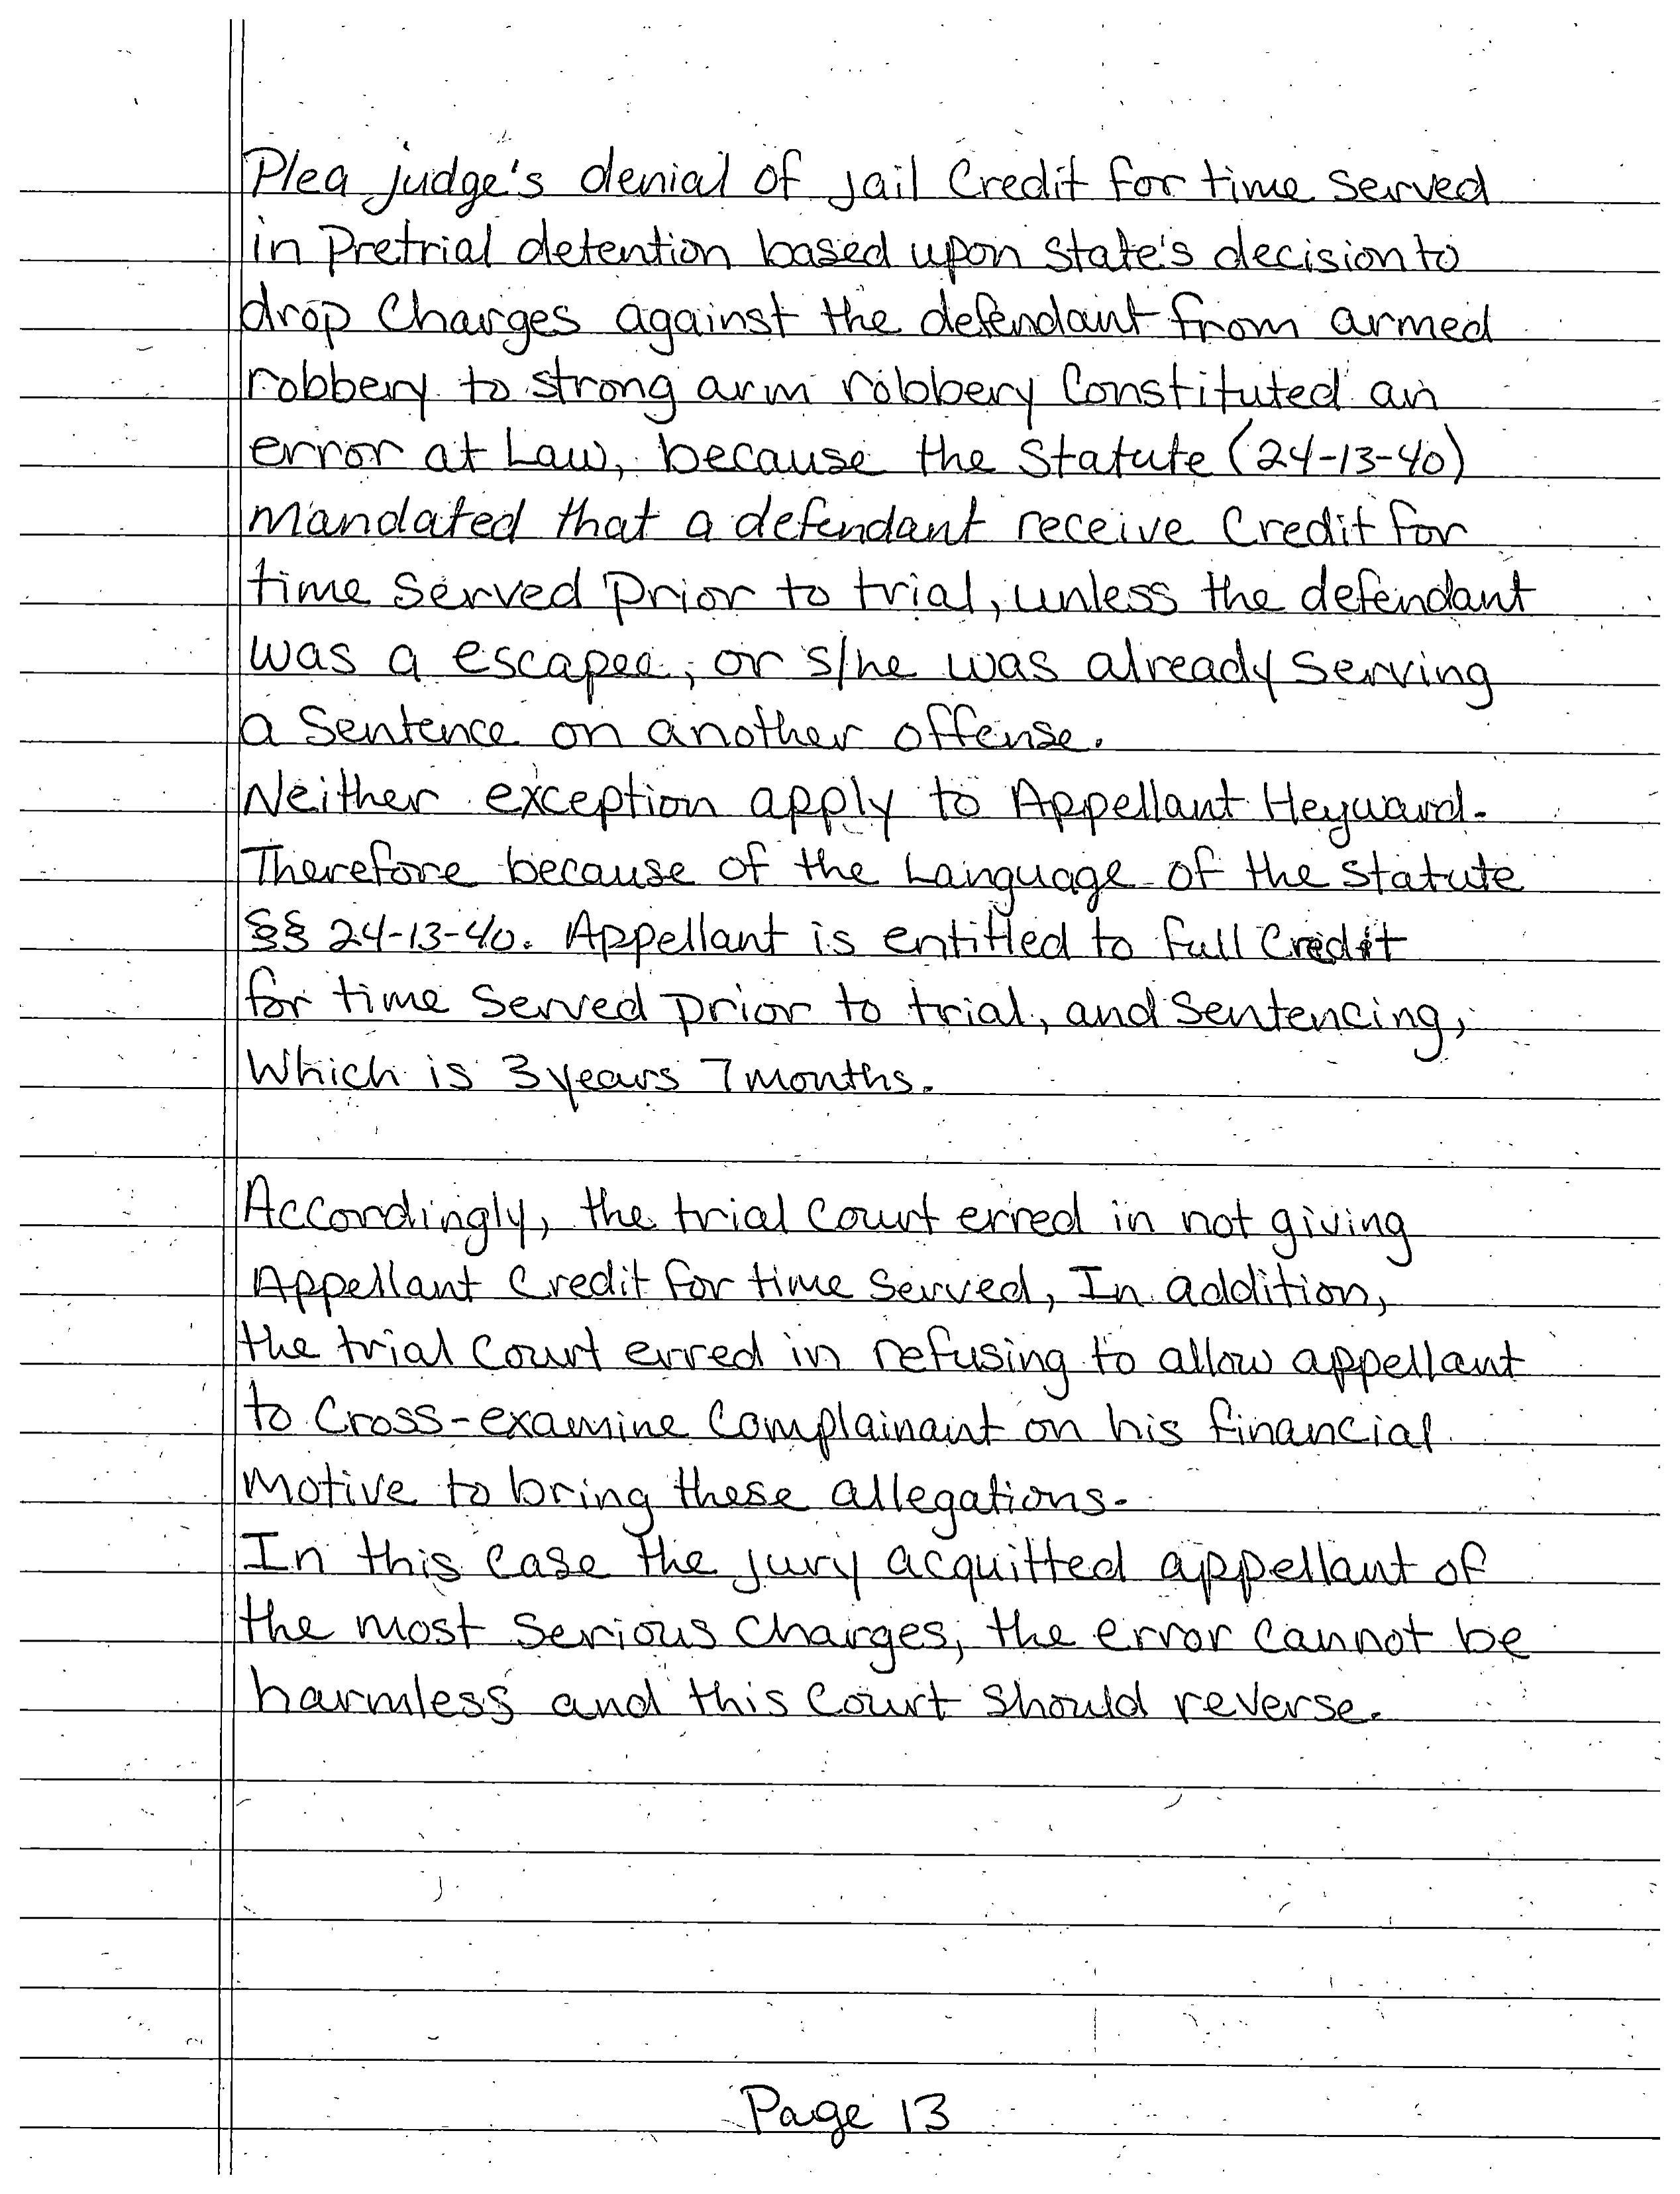 Plea judge's denial of jail Credit for time served
in Pretrial detention based upon state's decision to
drop Charges against the defendant from armed
robbery to strong arm robbery Constituted an
error at Law, because the Statute (24-13-40)
mandated that a defendant receive Credit for
time Served prior to trial, unless the defendant
was a escapee, or s/he was already serving
a Sentence on another offense.
Neither exception apply to Appellant Heyward.
Therefore because of the Language of the statute
§§ 24-13-40. Appellant is entitled to full Credit
for time Served prior to trial, and Sentencing,
Which is 3 years 7 months.
Accordingly, the trial Court erred in not giving
Appellant Credit for time Served, In addition,
the trial Court erred in refusing to allow appellant
to Cross-examine Complainant on his financial
motive to bring these allegations.
In this Case the jury acquitted appellant of
the most Serious Charges, the error Cannot be
harmless and this Court Should reverse.
Page 13